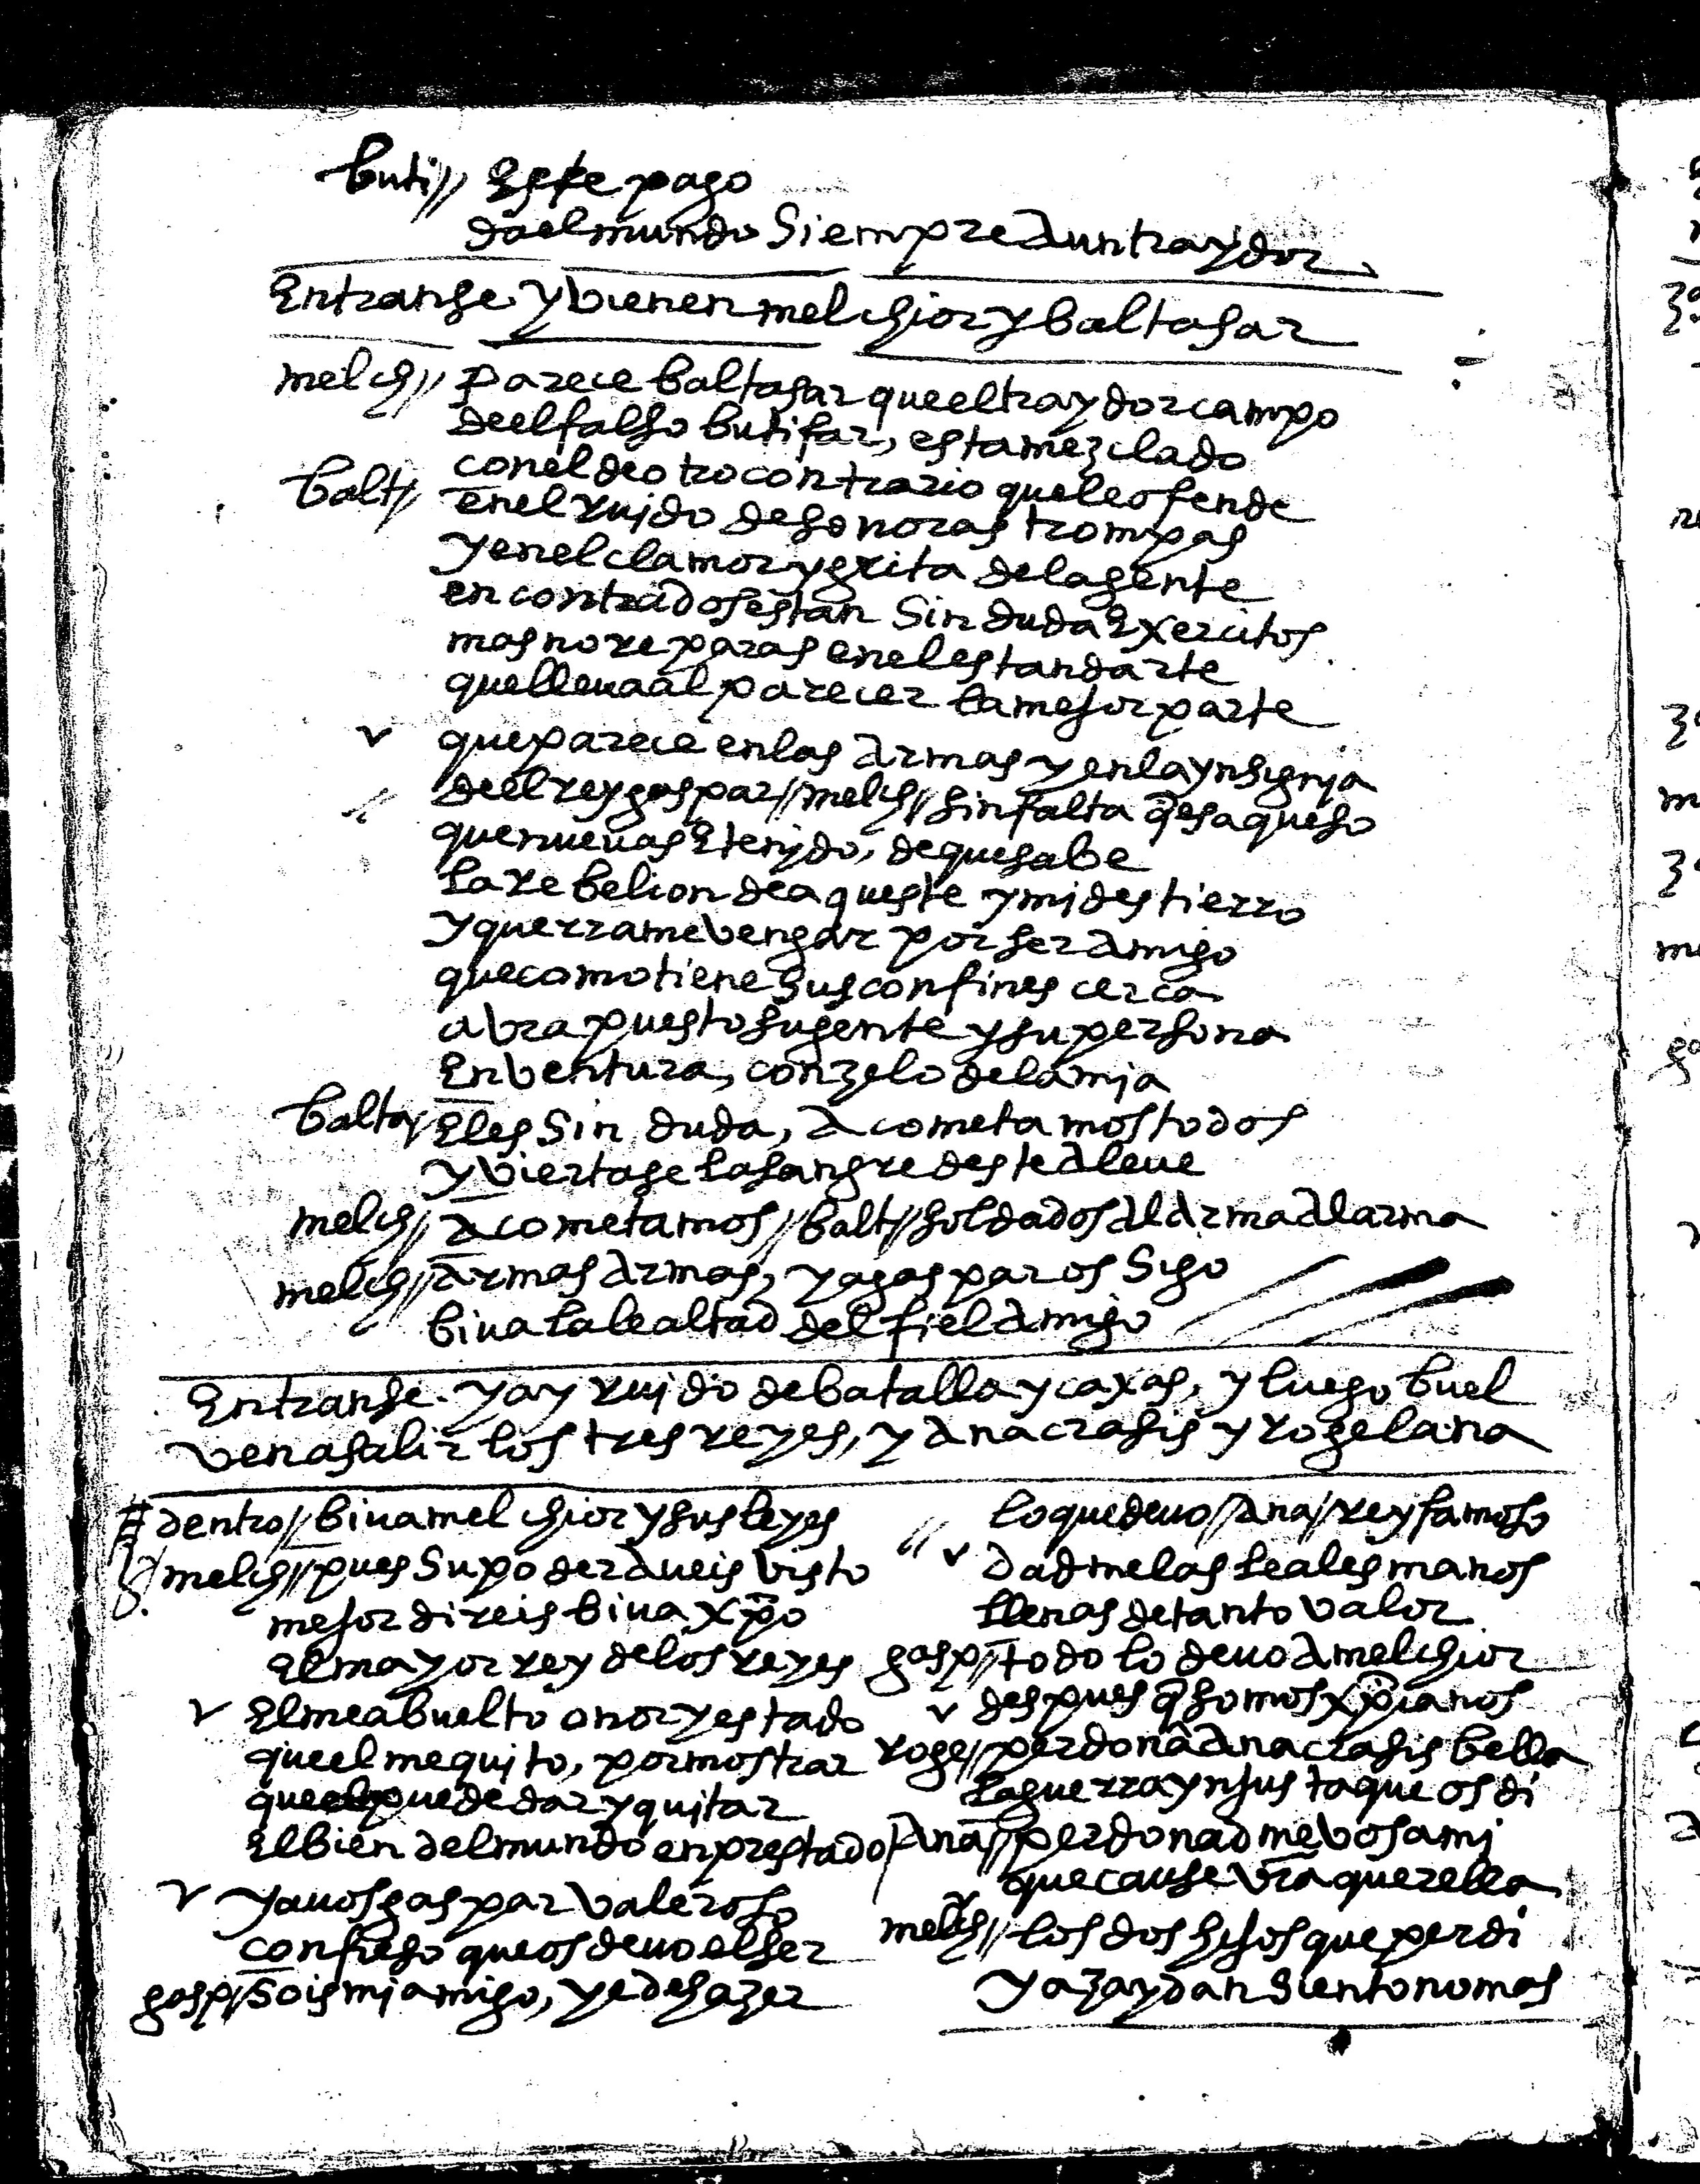 buti// Este pago
da el mundo Siempre A un traydor
Entranse y vienen melchior y baltasar
melch// Parece baltasar que el traydor campo
de el falso butifar, esta mezclado
con el de otro contrario que le ofende
balt// en el ruido de sonoras trompas
y en el clamor y grita de la gente
encontrados estan Sin duda Exercitos
mas no reparas en el estandarte
que lleua al parecer la mejor parte
v que parece en las Armas y en la ynsignia
de el rey gaspar // melch// sin falta q̃ es aqueso
que nueuas E tenido, de que sabe
la rebelion de aqueste y mi destierro
y querrame vengar por ser Amigo
que como tiene sus confines cerca
abra puesto su gente y su persona
En ventura, con zelo de la mia
balta/ El es Sin duda, Acometamos todos
y viertase la sangre deste Aleue
melch// Acometamos // balt// soldados Al Arma Al arma
melch// Armas Armas, ya gaspar os Sigo
biua la lealtad del fiel Amigo
Entranse. y ay ruido de batalla y caxas, y luego buel
ven a salir los tres reyes, y Anacrasis y rogelana
dentro// biua melchior y sus leyes
melch// pues Su poder Aueis visto
mejor direis biua xp̃o
El mayor rey de los reyes
v El me a buelto onor y estado
que el me quito, por mostrar
que el puede dar y quitar
El bien del mundo enprestado
v y a uos gaspar valeroso
confieso que os deuo el ser
gasp// Sois mi amigo, y e de hazer
lo que deuo // Ana// rey famoso
v dadme las leales manos
llenas de tanto valor
gasp// todo lo deuo A melchior
v despues q̃ somos xp̃ianos
roge// perdona Anacrasis bella
la guerra ynjusta que os di
Ana// perdonadme vos a mi
que cause vr̃a querella
melch// los dos hijos que perdi
y a zaydan siento no mas